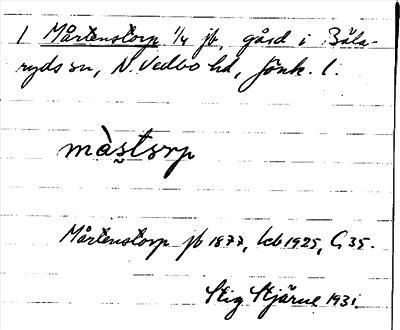 1 Mårtenstorp 1/4 jb, gård i Bäla-
ryds sn, N. Vedbo hd, Jönk. l.
màs̰torp
Mårtenstorp jb 1877, kb 1925, G 35.
Stig Stjärne 1931.